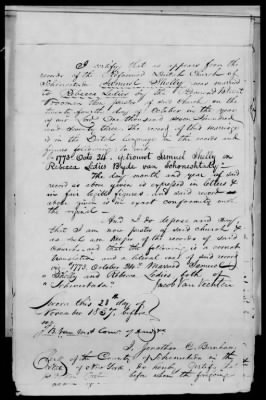 I certify that it appears from the
records of the Reformed Dutch Church of
Schenectada Samuel Shelly was married
to Rebecca Ledies by the Revd
Vrooman then pastor of said Church on the
twenty fourth day of October in the year
of our Lord One thousand seven hundred
and seventy three. The record of this marriage
is in the Dutch Language in the words and
figures following to wit
"1773. Octo 24. Getrouwt Samuel
Rebecca Ledies Byde van Schonechtade"
The day month and year of said
record as above given is expressed in letters &
figures and said record as
above given is an exact conformity with
the
And I do depose and say
that I am now pastor of said church &
as such am keeper of the records of said
church and that the following is a correct
translation and a literal one of said record
"1773. October 24th Married Samuel
and Rebecca Ledies both of
Schenectada" Jacob Van Vechten
Sworn this 28th day of
November 1837, before
me
J. B. Comr of
I, Jonathan C. Burnham
Clerk of the County of Schenectada in the
State of New York do hereby Certify, that
before whom the foregoing